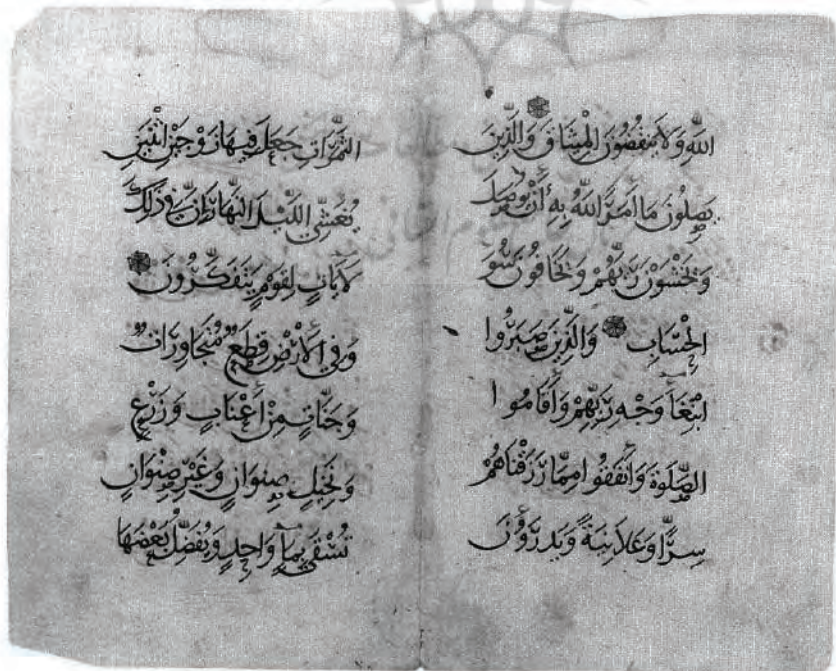 اللَّهِ وَلَا يَنْقُضُونَ الْمِيثَاقَ وَالَّذِينَ
يَصِلُونَ مَا أَمَرَ اللَّهُ بِهِ أَنْ يُوصَلَ
وَيَخْشَوْنَ رَبَّهُمْ وَيَخَافُونَ سُوَ
الْحِسَابِ وَالَّذِينَ صَبَرُوا
ابْتِغَآ وَجْهِ رَبِّهِمْ وَأَقَامُوا
الصَّلَوةَ وَأَنْفَقُوا مِمَّا رَزَقْنَاهُمْ
سِرًّا وَعَلَانِيَةً وَيَدْرَؤُنَ
الثَّمَرَاتِ جَعَلَ فِيهَا زَوْجَيْنِ اثْنَيْنِ
يُغْشِي اللَّيْلَ النَّهَارَ إِنَّ فِي ذَلِكَ
لَآيَاتٍ لِقَوْمٍ يَتَفَكَّرُونَ
وَفِي الْأَرْضِ قِطَعٌ مُتَجَاوِرَاتٌ
وَجَنَّاتٍ مِنْ أَعْنَابٍ وَزَرْعٍ
وَنَخِيلٍ صِنْوَانٍ وَغَيْرِ صِنْوَانٍ
تُسْقَى بِمَآ وَاحِدٍ وَيُفَضِّلُ بَعْضَهَا